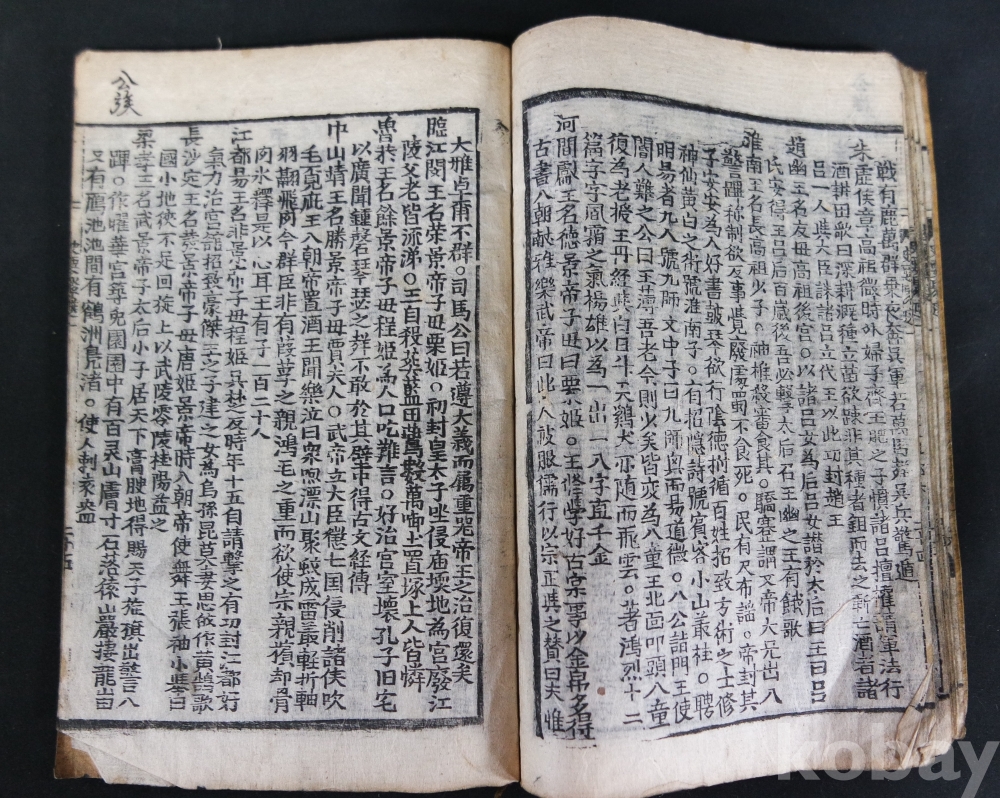 朱虛侯章高祖微時外婦子齊王肥之子憤諸呂擅權請軍法行
酒耕田歌曰深耕溉種立苗欲踈非其種者鉏而去之斬亡酒者諸
呂一人與大臣誅諸呂立代王以此功封趙王
趙幽王名友母高祖後宮○以諸呂女為后呂女讃於太后曰王曰呂
氏安得王呂后百歲後吾必擊太后召王幽之王有餓歌
淮南王名長高祖少子○袖椎殺審食其○驕蹇謂文帝大兄出入
警蹕称制欲反事覺廢處蜀不食死○民有尺布謠○帝封其
子安安為人好書鼓琴欲行陰德拊循百姓招致方術之士修
神仙黃白之術號淮南子○有招隱詩號賓客小山叢桂○聘
明易者九人號九師文中子曰九師興而易道微○八公詣門王使
閽人難之公曰王薄吾老今則少矣皆变為八童王北面叩頭八童
復為老授王丹經與白日升天鷄犬亦随而飛雲○著鴻烈十二
篇字字風霜之氣揚雄以為一出一入字直千金
河間獻王名德景帝子母曰栗姬○王修學好古事以金帛多得
古書入朝献雅樂武帝曰此人被服儒行以宗正典之贊曰夫惟
公族
大雅卓甫不群○司馬公曰若遵大義而属重器帝王之治復還矣
臨江閔王名荣景帝子母栗姬○初封皇太子坐侵庙壖地為宮廢江
陵父老皆流涕○王自殺葬藍田鷰數萬啣土置塚上人皆憐
魯恭王名餘景帝子母程姬為人口吃難言○好治宮室壞孔子旧宅
以廣聞鍾聲琴瑟之聲不敢於其壁中得古文經傳
中山靖王名勝景帝子母賈夫人○武帝立大臣懲七国侵削諸侯吹
毛覓疵王入朝帝置酒王聞樂泣曰衆喣漂山聚蚊成雷叢軽折軸
羽翮飛肉今群臣非有葭莩之親鴻毛之重而欲使宗親擯却骨
肉氷釋是以心耳王有子一百二十人
江都易王名非景帝子母程姬○吳楚反時年十五自請擊之有功封江都好
氣力治宮舘招致豪傑○王子建之女為烏孫昆莫妻思故作黃鵠歌
長沙定王名發景帝子母唐姬景帝時入朝帝使舞王張袖小擧曰
國小地狹不足回旋上以武陵零陵桂陽益之
梁孝王名武景帝子太后小子居天下膏腴地得賜天子旌旗出警入
蹕○作曜華宮莬園園中有百灵山膚寸石落猿岩棲龍岫
又有鴈池池間有鶴洲鳧渚○使人刺袁盎
kobay